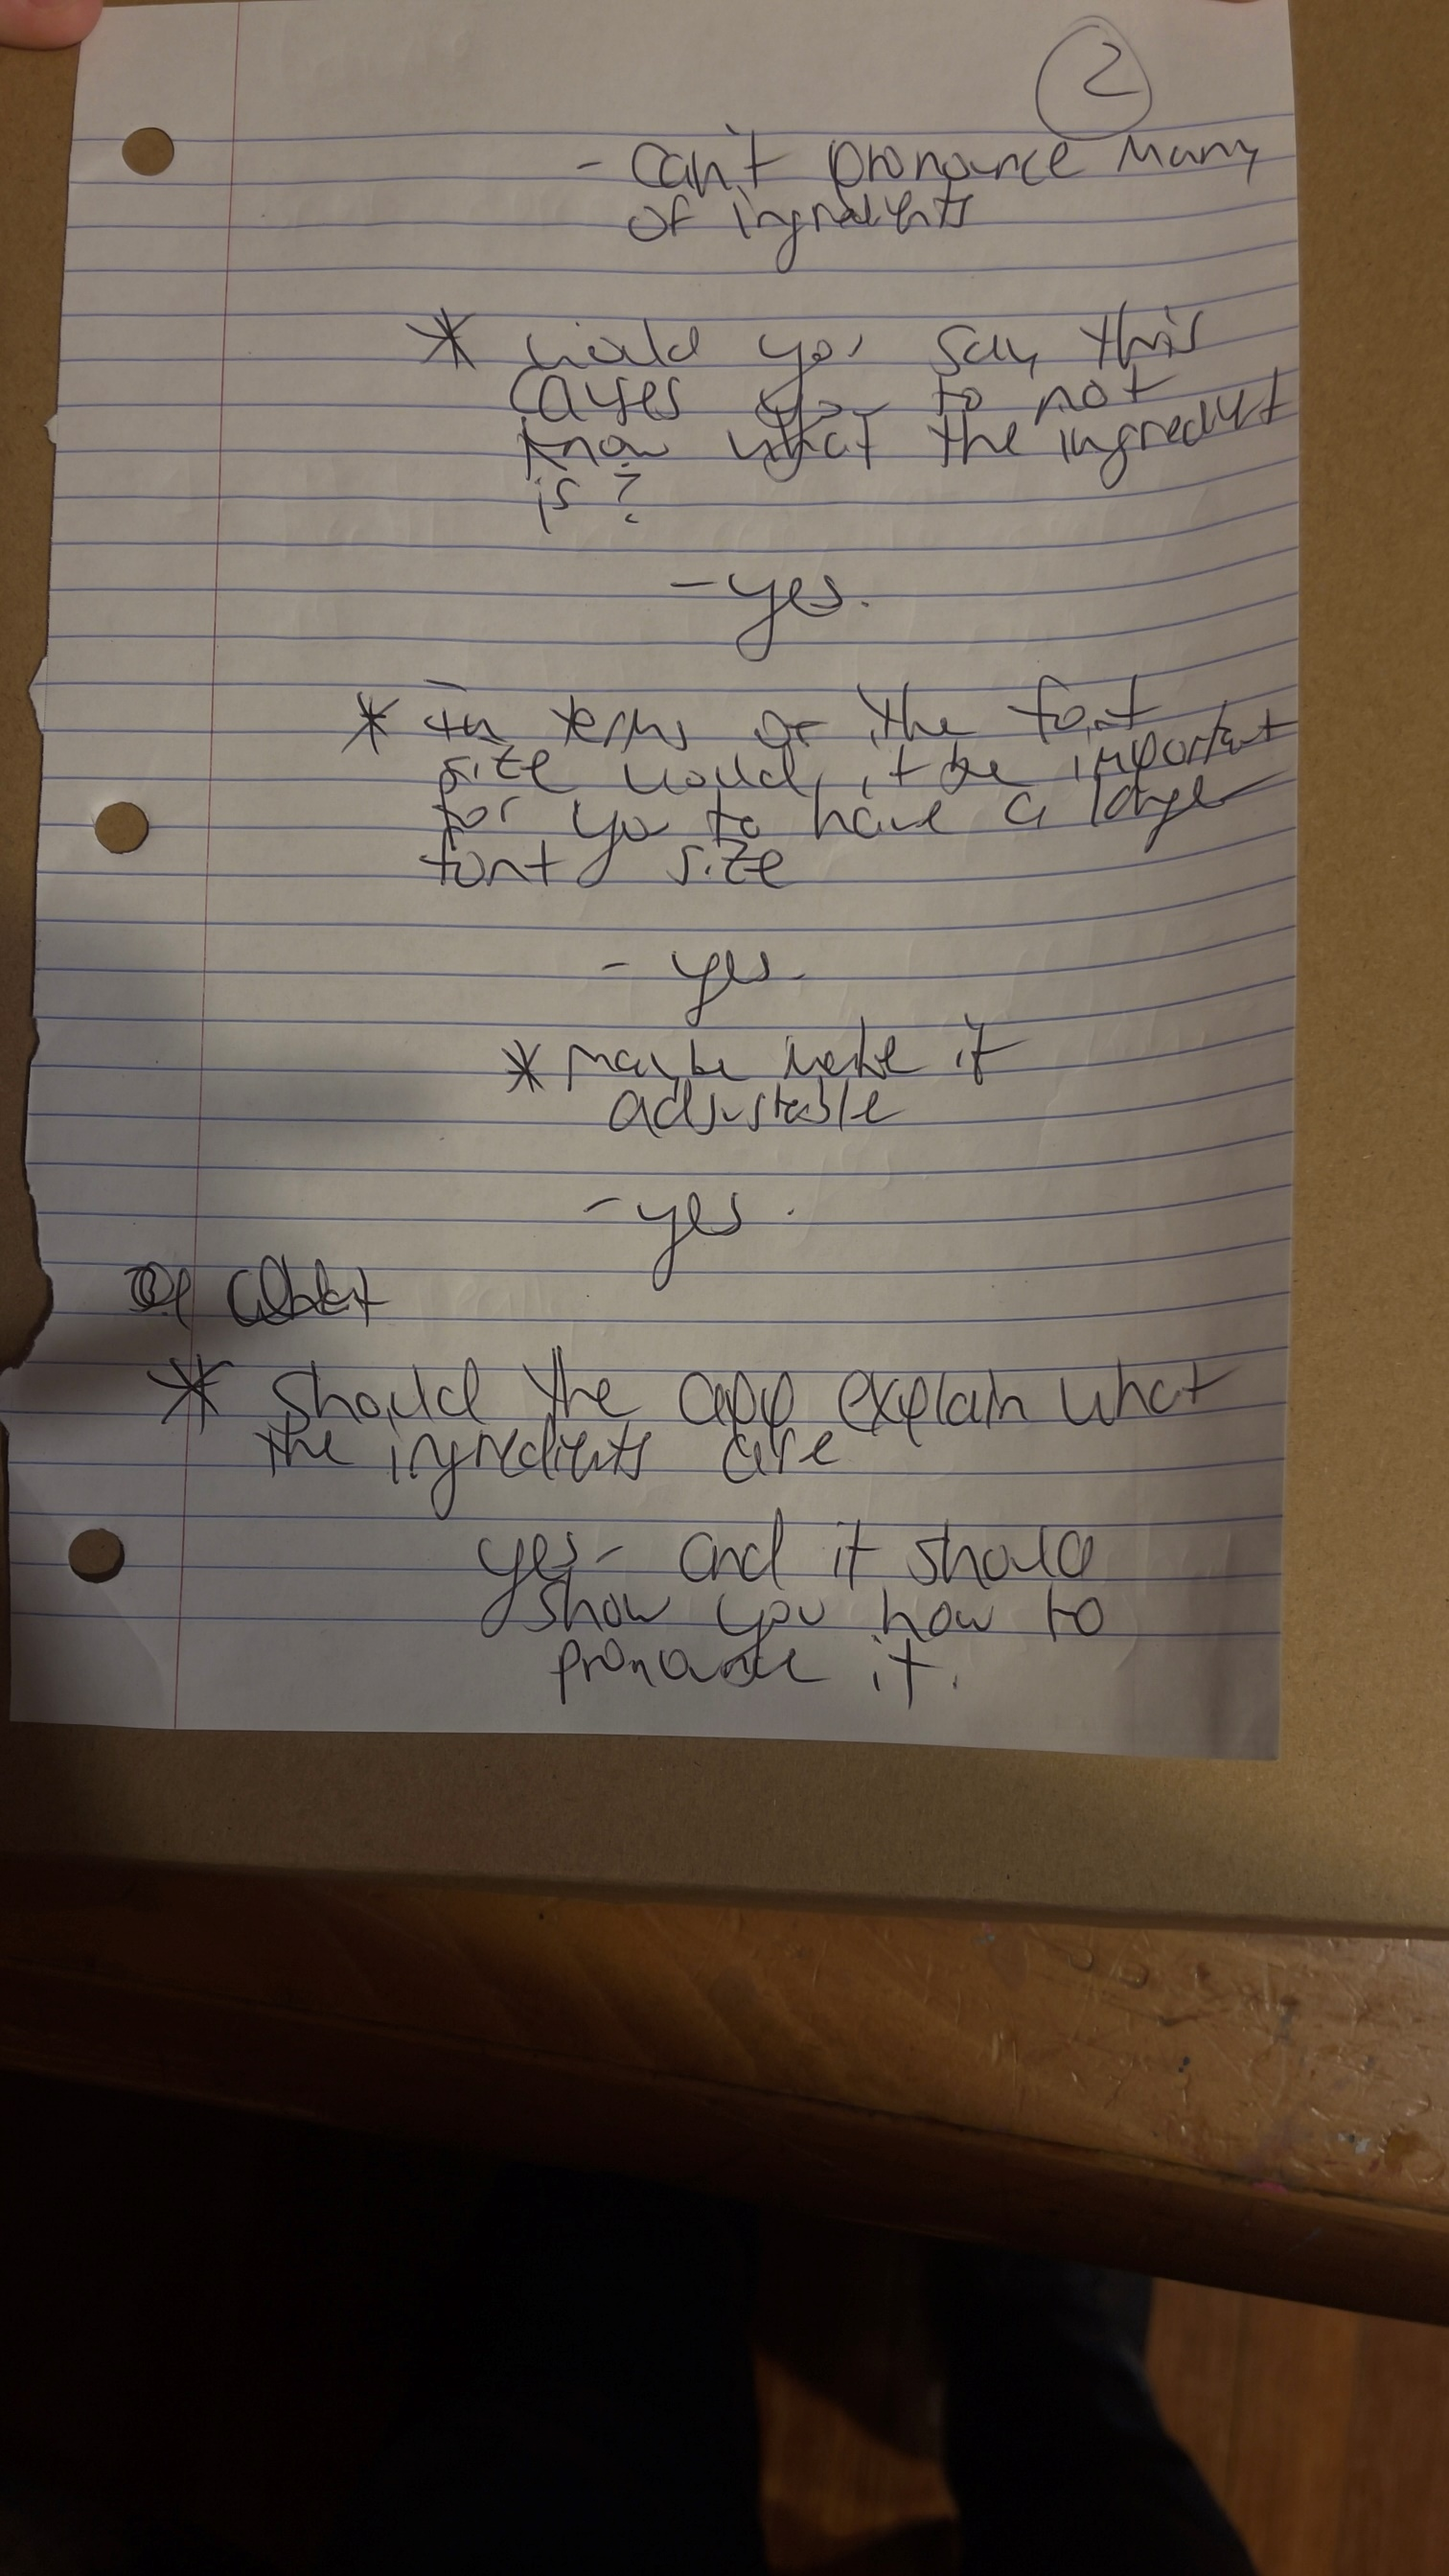 2
- Can't pronounce many
of ingredients
* would you say this
causes you to not
know what the ingredient
is?
- yes.
* In terms of the font
size would it be important
for you to have a larger
font size
- yes.
* maybe make it
adjustable
- yes.
* Should the app explain what
the ingredients are
yes - and it should
show you how to
pronounce it.